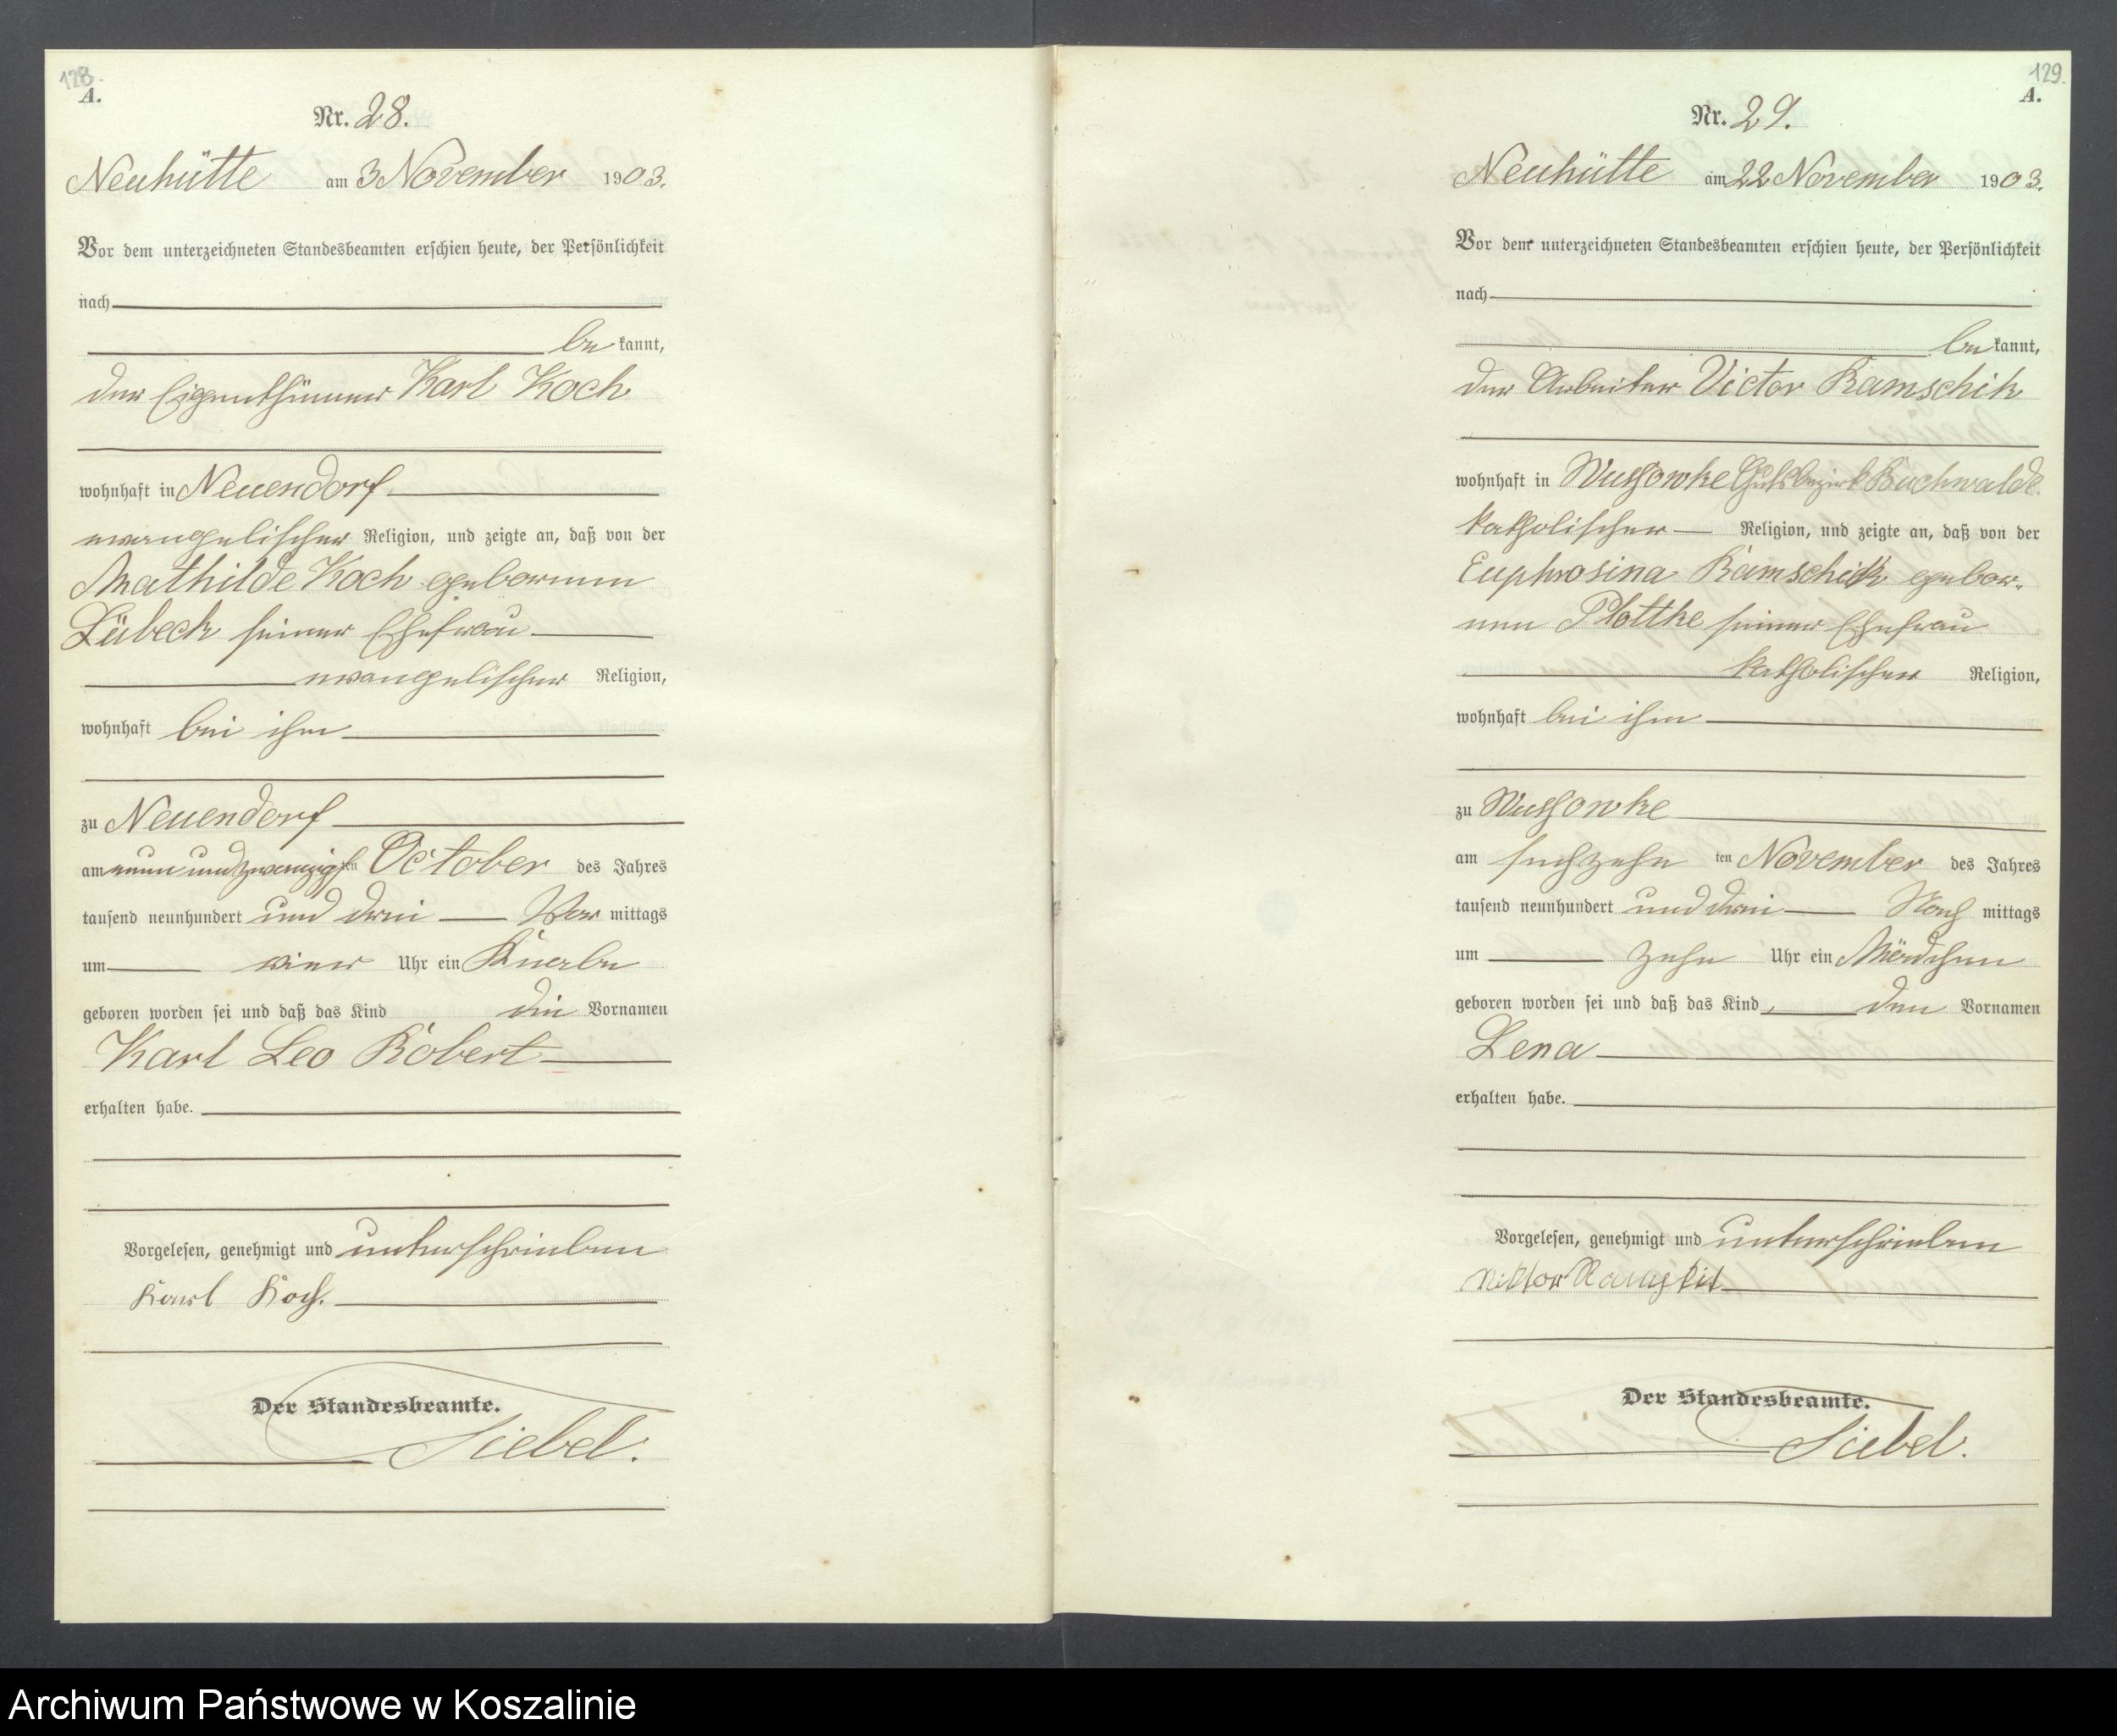 128.
A.
Nr. 28.
Neuhütte am 3 November 1903.
Vor dem unterzeichneten Standesbeamten erschien heute, der Persönlichkeit
nach
be kannt,
der Eigenthümer Karl Koch
wohnhaft in Neuendorf
evangelischer Religion, und zeigte an, daß von der
Mathilde Koch geborenen
Lübeck seiner Ehefrau
evangelischer Religion,
wohnhaft bei ihm
zu Neuendorf
am neun und zwanzigsten October des Jahres
tausend neunhundert und drei Vor mittags
um vier Uhr ein Knabe
geboren worden sei und daß das Kind die Vornamen
Karl Leo Robert
erhalten habe.
Vorgelesen, genehmigt und unterschrieben
Karl Koch.
Der Standesbeamte.
Siebel.
129.
A.
Nr. 29.
Neuhütte am 22 November 1903.
Vor dem unterzeichneten Standesbeamten erschien heute, der Persönlichkeit
nach
be kannt,
der Arbeiter Victor Ramschik
wohnhaft in Wussowke Gutsbezirk Buchwalde
katholischer Religion, und zeigte an, daß von der
Euphrosina Ramschick gebor-
nen Plottke seiner Ehefrau
katholischer Religion,
wohnhaft bei ihm
zu Wussowke
am sechzehn ten November des Jahres
tausend neunhundert und drei Nach mittags
um zehn Uhr ein Mädchen
geboren worden sei und daß das Kind den Vornamen
Lena
erhalten habe.
Vorgelesen, genehmigt und unterschrieben
Der Standesbeamte.
Siebel.
Archiwum Państwowe w Koszalinie